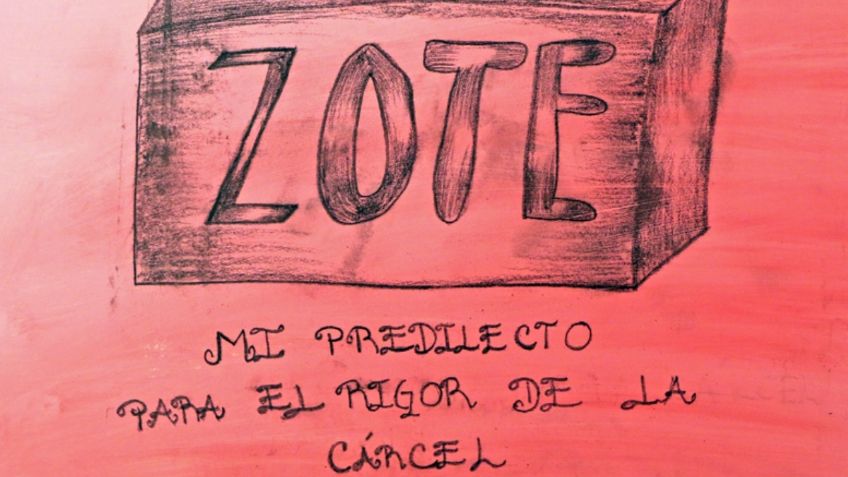 ZOTE
MI PREDILECTO
PARA EL RIGOR DE LA
CÁRCEL